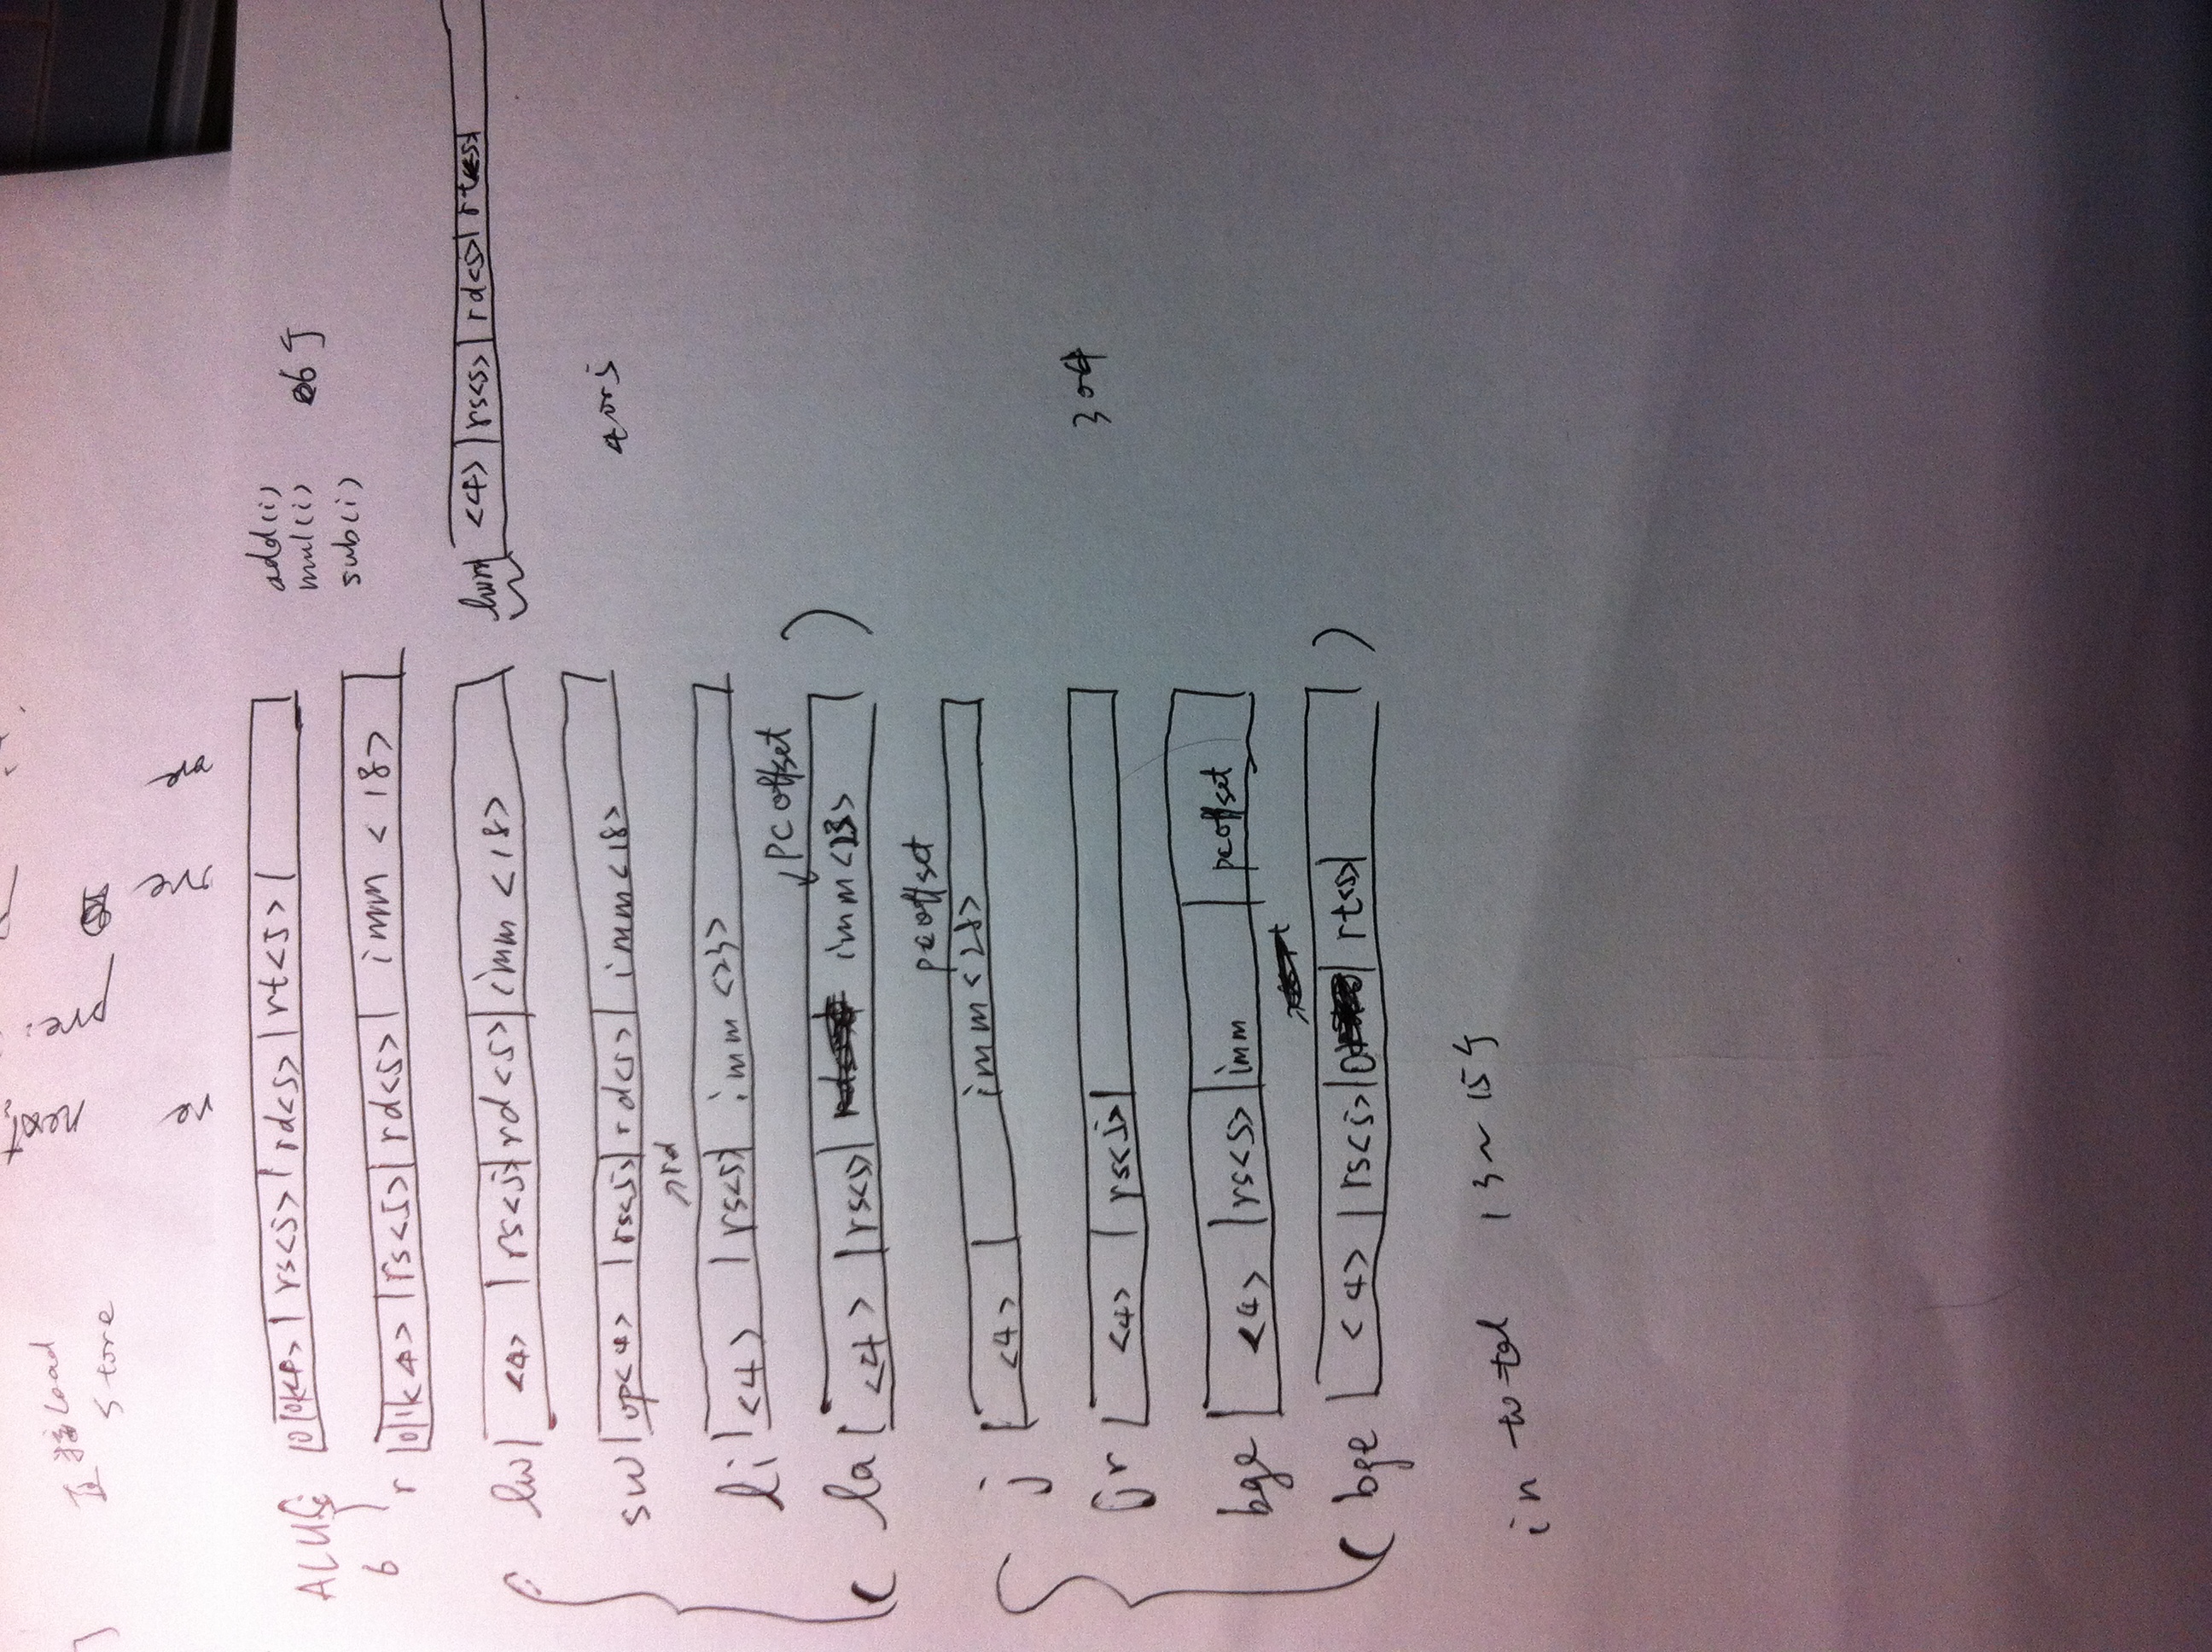 直接load
store
next
pre:
re
ALU i 0 0 <4> rs<5> rd<5> rt<5>
add(i)
mul(i)
sub(i)
6个
6
r 0 1 <4> rs<5> rd<5> imm <18>
lw <4> rs<5> rd<5> imm <18>
<4> rs<5> rd<5> rt<5>
sw op<4> rs<5> rd<5> imm<18>
4or5
↗rd
li <4> rs<5> imm <23>
↙PC offset
( la <4> rs<5> imm<23> )
pc offset
j <4> imm<28>
jr <4> rs<5>
3or4
bge <4> rs<5> imm pcoffset
( bge <4> rs<5> rt<5> )
in total 13~15个